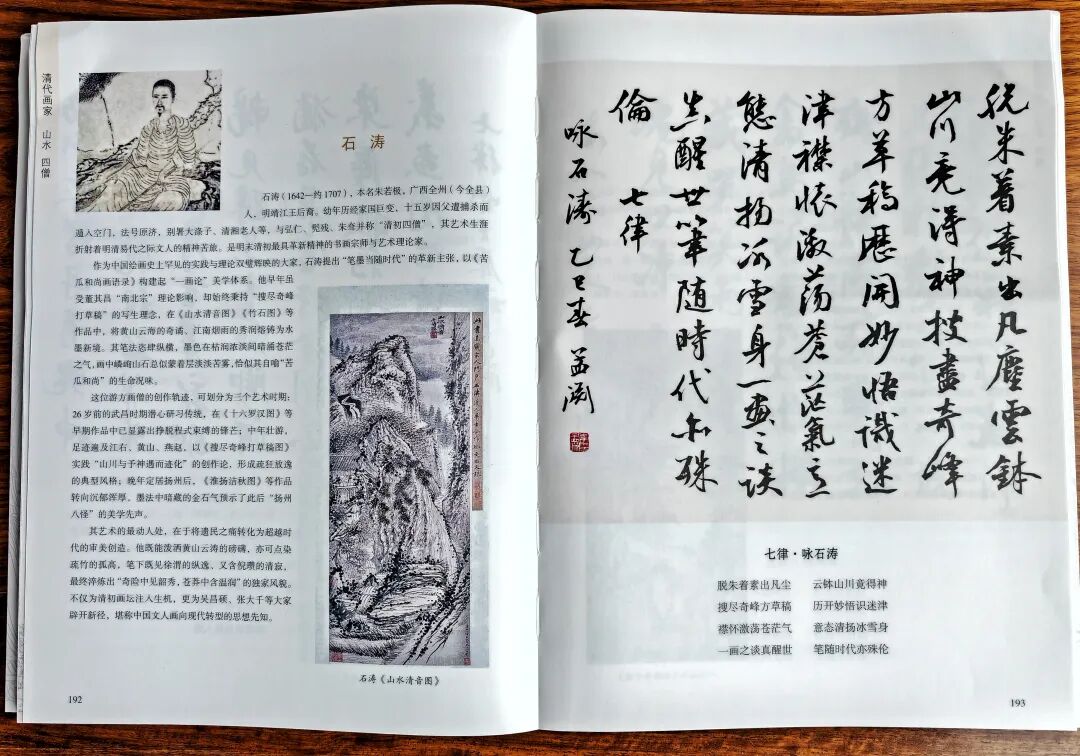 清代画家 山水 四僧
石 涛
石涛（1642—约1707），本名朱若极，广西全州（今全县）
人，明靖江王后裔。幼年历经家国巨变，十五岁因父遭捕杀而
遁入空门，法号原济，别署大涤子、清湘老人等，与弘仁、髡残、朱耷并称“清初四僧”，其艺术生涯
折射着明清易代之际文人的精神苦旅。是明末清初最具革新精神的书画宗师与艺术理论家。
作为中国绘画史上罕见的实践与理论双璧辉映的大家，石涛提出“笔墨当随时代”的革新主张，以《苦
瓜和尚画语录》构建起“一画论”美学体系。他早年虽
受董其昌“南北宗”理论影响，却始终秉持“搜尽奇峰
打草稿”的写生理念，在《山水清音图》《竹石图》等
作品中，将黄山云海的奇谲、江南烟雨的秀润熔铸为水
墨新境。其笔法恣肆纵横，墨色在枯润浓淡间暗涌苍茫
之气，画中嶙峋山石总似蒙着层淡淡苦雾，恰似其自喻“苦
瓜和尚”的生命况味。
这位游方画僧的创作轨迹，可划分为三个艺术时期：
26岁前的武昌时期潜心研习传统，在《十六罗汉图》等
早期作品中已显露出挣脱程式束缚的锋芒；中年壮游，
足迹遍及江右、黄山、燕赵，以《搜尽奇峰打草稿图》
实践“山川与予神遇而迹化”的创作论，形成疏狂放逸
的典型风格；晚年定居扬州后，《淮扬洁秋图》等作品
转向沉郁浑厚，墨法中暗藏的金石气预示了此后“扬州
八怪”的美学先声。
其艺术的最动人处，在于将遗民之痛转化为超越时
代的审美创造。他既能泼洒黄山云涛的磅礴，亦可点染
疏竹的孤高，笔下既见徐渭的纵逸，又含倪瓒的清寂，
最终淬炼出“奇险中见韶秀，苍莽中含温润”的独家风貌。
不仅为清初画坛注入生机，更为吴昌硕、张大千等大家
辟开新径，堪称中国文人画向现代转型的思想先知。
石涛《山水清音图》
192
脱朱着素出凡塵雲鉢
山川竟得神搜盡奇峰
方草稿歷開妙悟識迷
津襟懷激荡蒼茫氣意
態清揚冰雪身一畫之談
真醒世筆随時代亦殊
倫 七律
咏石濤 乙巳春
七律·咏石涛
脱朱着素出凡尘 云钵山川竟得神
搜尽奇峰方草稿 历开妙悟识迷津
襟怀激荡苍茫气 意态清扬冰雪身
一画之谈真醒世 笔随时代亦殊伦
193